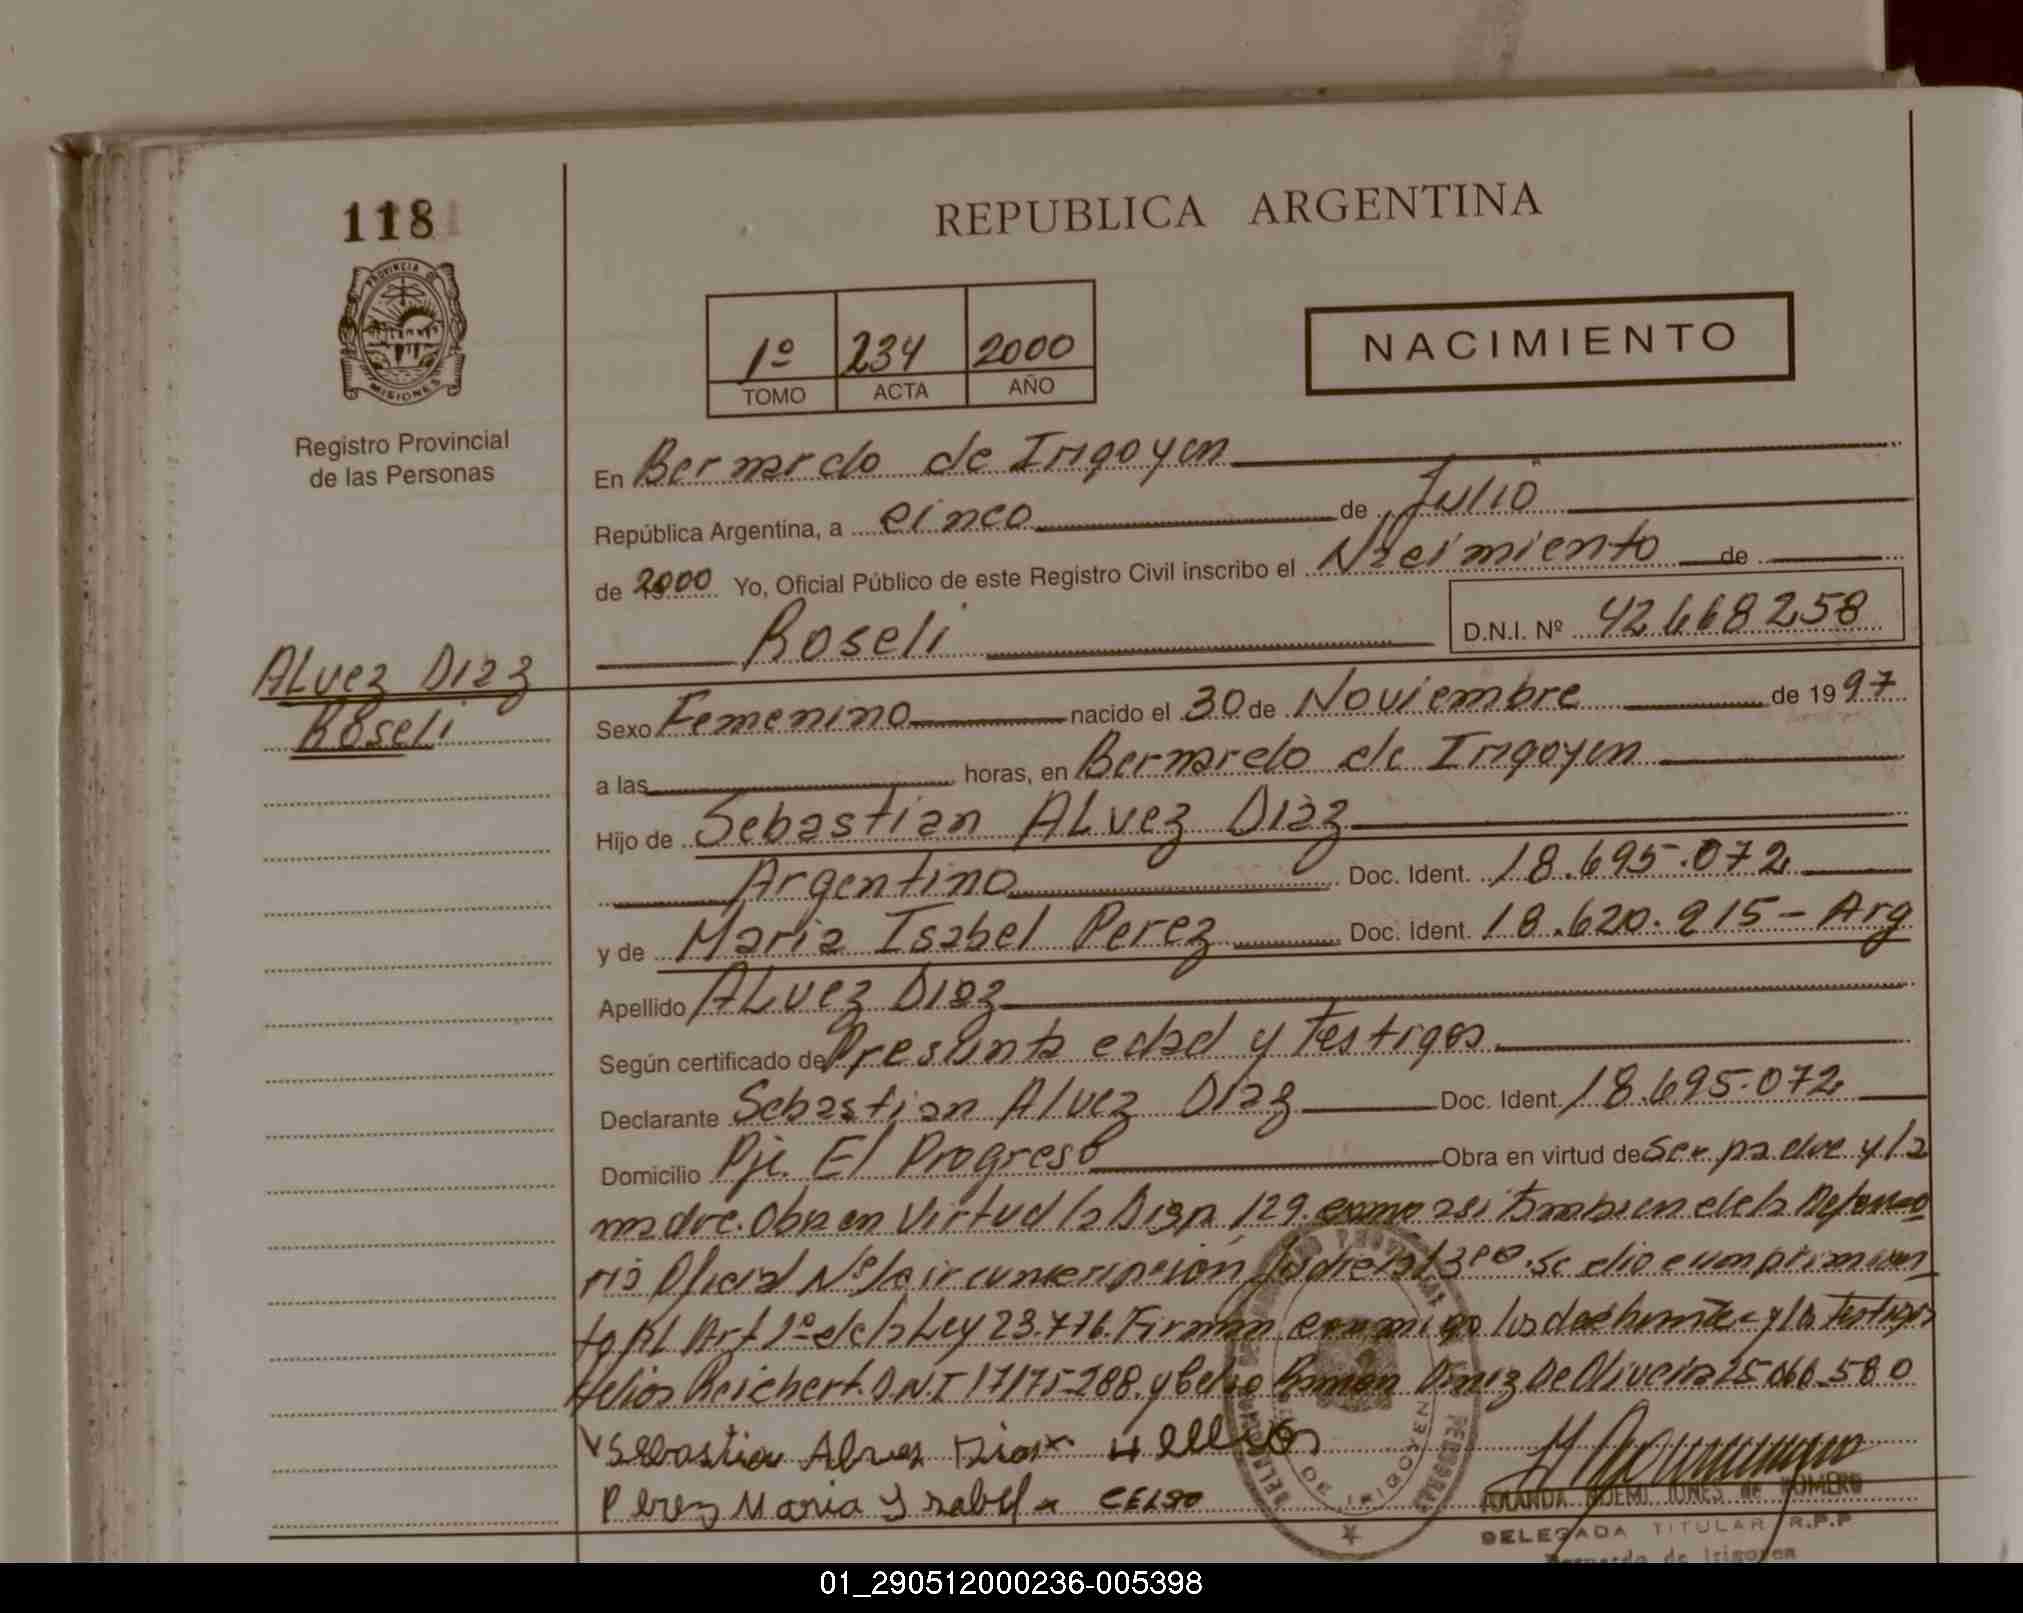 118
REPUBLICA ARGENTINA
PROVINCIA DE
MISIONES
Registro Provincial
de las Personas
1º 234 2000
TOMO ACTA AÑO
NACIMIENTO
En Bernardo de Irigoyen
República Argentina, a cinco de Julio
de 2000 Yo, Oficial Público de este Registro Civil inscribo el Nacimiento de
Roseli D.N.I. Nº 42668258
ALvez Diaz
Roseli
Sexo Femenino nacido el 30 de Noviembre de 1997
a las horas, en Bernardo de Irigoyen
Hijo de Sebastian ALvez Diaz
Argentino Doc. Ident. 18.695.072
y de Maria Isabel Perez Doc. Ident. 18.620.915 - Arg
Apellido ALvez Diaz
Según certificado de Presunta edad y Testigos
Declarante Sebastian Alvez Diaz Doc. Ident. 18.695.072
Domicilio Pje. El Progreso Obra en virtud de Ser padre y la
madre. Obra en Virtud la Disp. 129. como asi Tambien de la Defenso
ria Oficial Nº 1 circunscripción Judicial 3ra. Se dio cumplimien
to Al Art 1º de la Ley 23.776. Firman conmigo los declarantes y los Testigos
Helios Reichert D.N.I 17175288. y Celso Ramon Diniz De Oliveira 25.060.580
Sebastian Alvez Diaz Hellios
Perez Maria Ysabel CELSO
DE IRIGOYEN
YOLANDA NOEMI de ROMERO
DELEGADA TITULAR R.P.P
Bernardo de Irigoyen
01_290512000236-005398